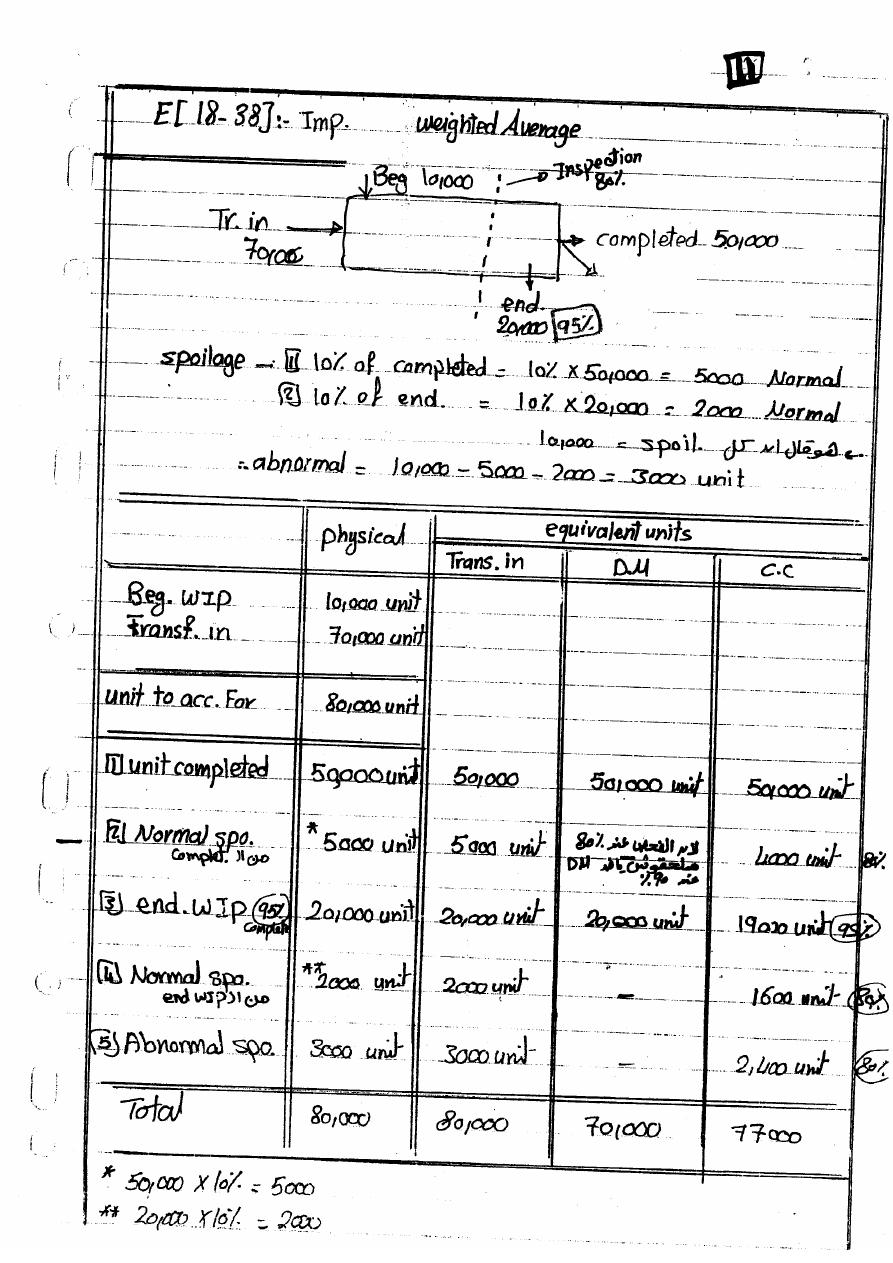 11
E[18-38]:- Imp. weighted Average
Beg 10,000
Inspection
80%
Tr. in
70,000
completed 50,000
end.
20,000 95%
spoilage → [1] 10% of completed = 10% X 50,000 = 5000 Normal
[2] 10% of end. = 10% X 20,000 = 2000 Normal
هو قال ان كل spoil. = 10,000
∴ abnormal = 10,000 - 5000 - 2000 = 3000 unit
physical equivalent units
Trans. in D.M C.C
Beg. WIP 10,000 unit
Transf. in 70,000 unit
unit to acc. For 80,000 unit
[1] unit completed 50,000 unit 50,000 50,000 unit 50,000 unit
[2] Normal spo. * 5000 unit 5000 unit 4000 unit 80%
من الـ complet.
لان الفحص عند 80%
DM
عند 90%
[3] end. WIP 95% 20,000 unit 20,000 unit 20,000 unit 19000 unit 95%
complete
[4] Normal spo. ** 2000 unit 2000 unit - 1600 unit 80%
من الـ end WIP
[5] Abnormal spo. 3000 unit 3000 unit - 2,400 unit 80%
Total 80,000 80,000 70,000 77000
* 50,000 X 10% = 5000
** 20,000 X 10% = 2000